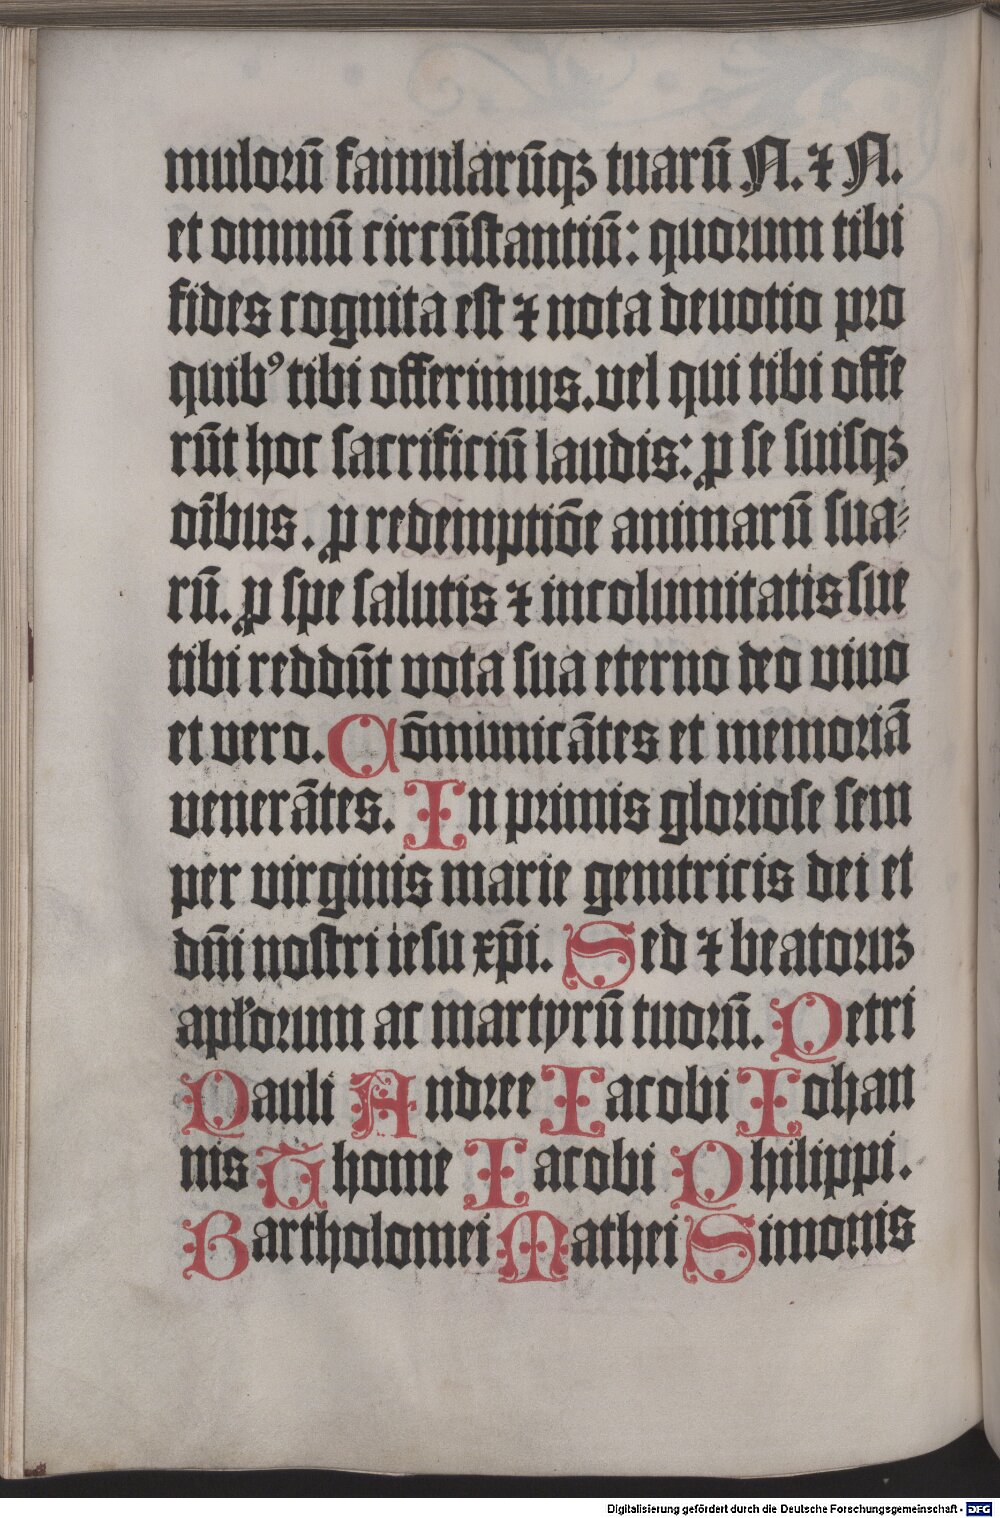 mulorū famularūqꝫ tuarū N. ⁊ N.
et omniū circūstantiū: quorum tibi
fides cognita est ⁊ nota deuotio pro
quibꝰ tibi offerimus. vel qui tibi offe
rūt hoc sacrificiū laudis: ꝓ se suisqꝫ
oībus. ꝓ redemptiōe animarū sua⸗
rū. ꝓ spe salutis ⁊ incolumitatis sue
tibi reddūt vota sua eterno deo viuo
et vero. Cōmunicātes et memoriā
venerātes. In primis gloriose sem
per virginis marie genitricis dei et
dn̄i nostri iesu xp̄i. Sed ⁊ beatoruꝫ
apl'orum ac martyrū tuorū. Petri
Pauli Andree Iacobi Iohan
nis Thome Iacobi Philippi.
Bartholomei Mathei Simonis
Digitalisierung gefördert durch die Deutsche Forschungsgemeinschaft - DFG